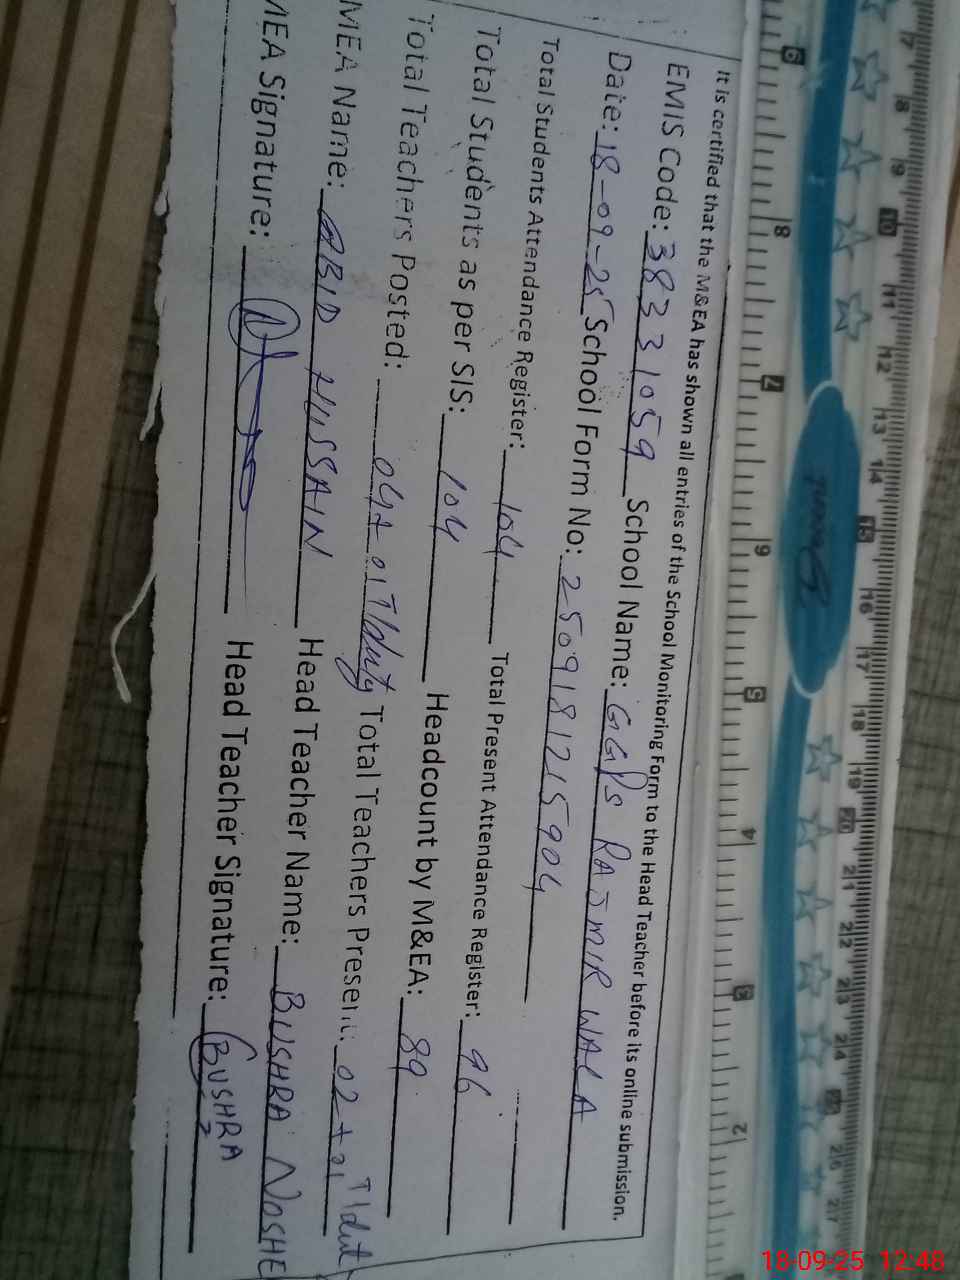 It is certified that the M&EA has shown all entries of the School Monitoring Form to the Head Teacher before its online submission.
EMIS Code: 38331059 School Name: GGPS RAJMIR WALA
Date: 18-09-25 School Form No: 2509181215904
Total Students Attendance Register: 104 Total Present Attendance Register: 96
Total Students as per SIS: 104 Headcount by M&EA: 89
Total Teachers Posted: 04+01 T/duty Total Teachers Present: 02+01 T/dut
MEA Name: ABID HUSSAIN Head Teacher Name: BUSHRA NOSHE
MEA Signature: Head Teacher Signature: BUSHRA
7 8 9 10 11 12 13 14 15 16 17 18 19 20 21 22 23 24 25 26 27
6 8 7 6 5 4 3 2
18-09-25 12:48